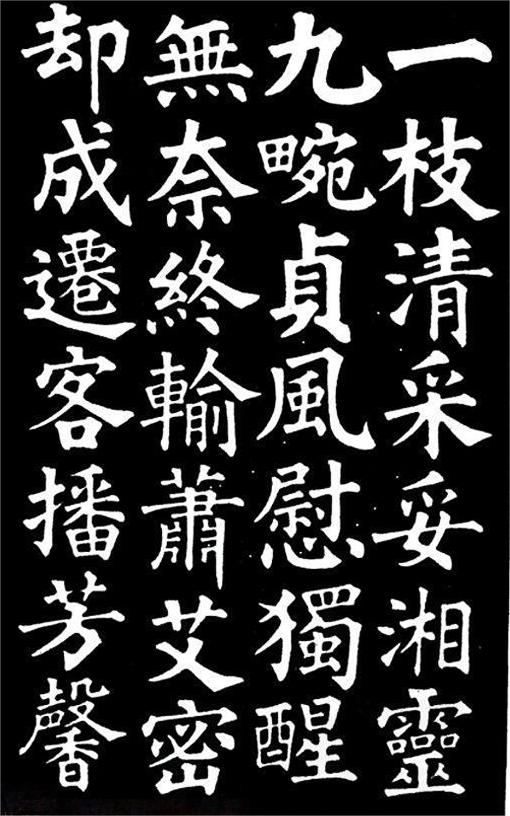 一枝清采妥湘靈
九畹貞風慰獨醒
無奈終輸蕭艾密
却成遷客播芳馨